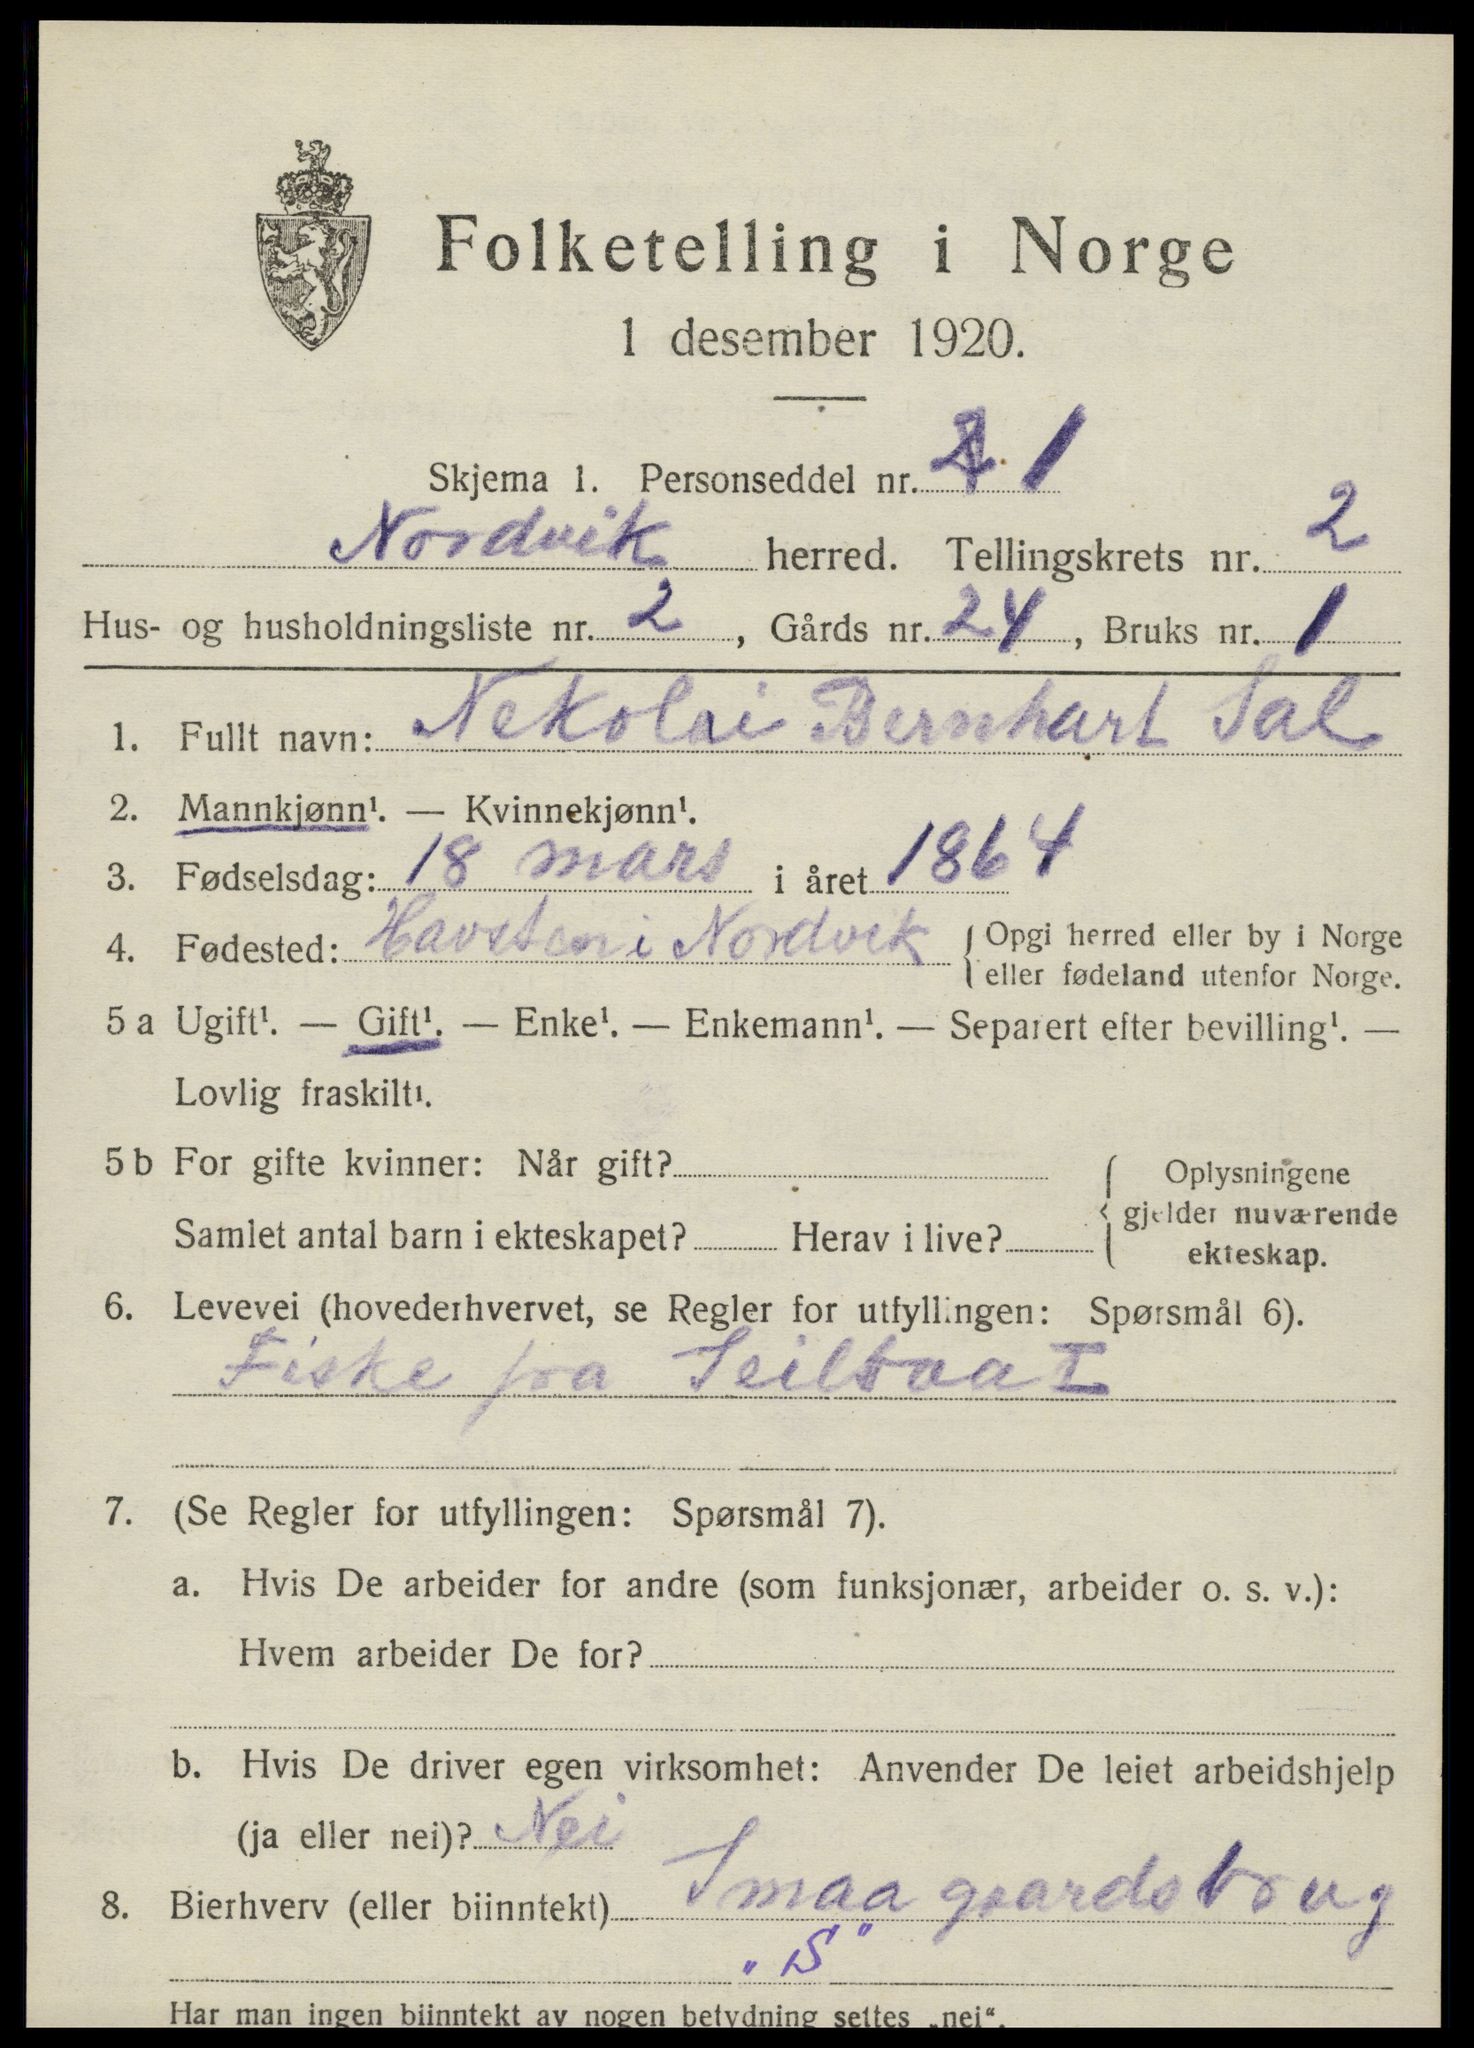 Folketelling i Norge
1 desember 1920.
Skjema 1. Personseddel nr. 1
Nordvik herred. Tellingskrets nr. 2
Hus- og husholdningsliste nr. 2, Gårds nr. 24, Bruks nr. 1
1. Fullt navn: Nekolai Bernhart Sal
2. Mannkjønn¹. — Kvinnekjønn¹.
3. Fødselsdag: 18 mars i året 1864
4. Fødested: Havsten i Nordvik { Opgi herred eller by i Norge
eller fødeland utenfor Norge.
5 a Ugift¹. — Gift¹. — Enke¹. — Enkemann¹. — Separert efter bevilling¹. —
Lovlig fraskilt¹.
5 b For gifte kvinner: Når gift?
Samlet antal barn i ekteskapet? Herav i live?
{ Oplysningene
gjelder nuværende
ekteskap.
6. Levevei (hovederhvervet, se Regler for utfyllingen: Spørsmål 6).
Fiske fra Seilbaat
7. (Se Regler for utfyllingen: Spørsmål 7).
a. Hvis De arbeider for andre (som funksjonær, arbeider o. s. v.):
Hvem arbeider De for?
b. Hvis De driver egen virksomhet: Anvender De leiet arbeidshjelp
(ja eller nei)? Nei
8. Bierhverv (eller biinntekt) Smaa gaardsbrug
"S"
Har man ingen biinntekt av nogen betydning settes „nei“.